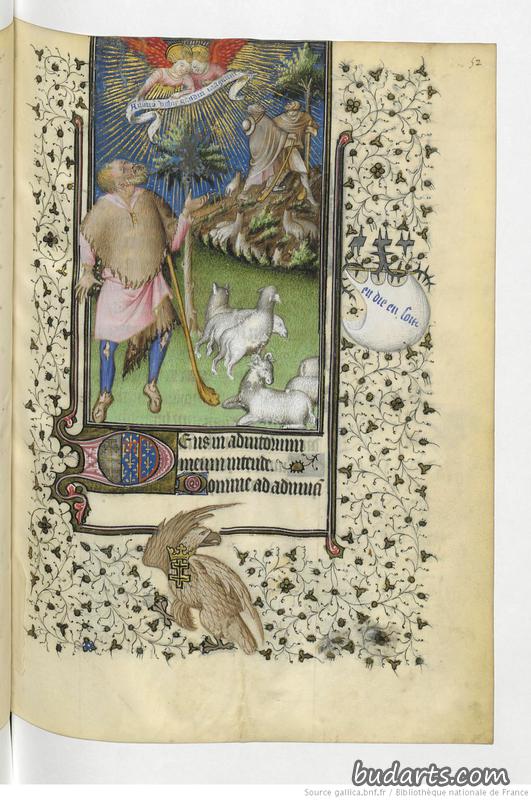 52
vobis gaudiu
en die en soit
Deus in adiutorium
meum intende.
Domine ad adiuua
budarts.com
Source gallica.bnf.fr / Bibliothèque nationale de France